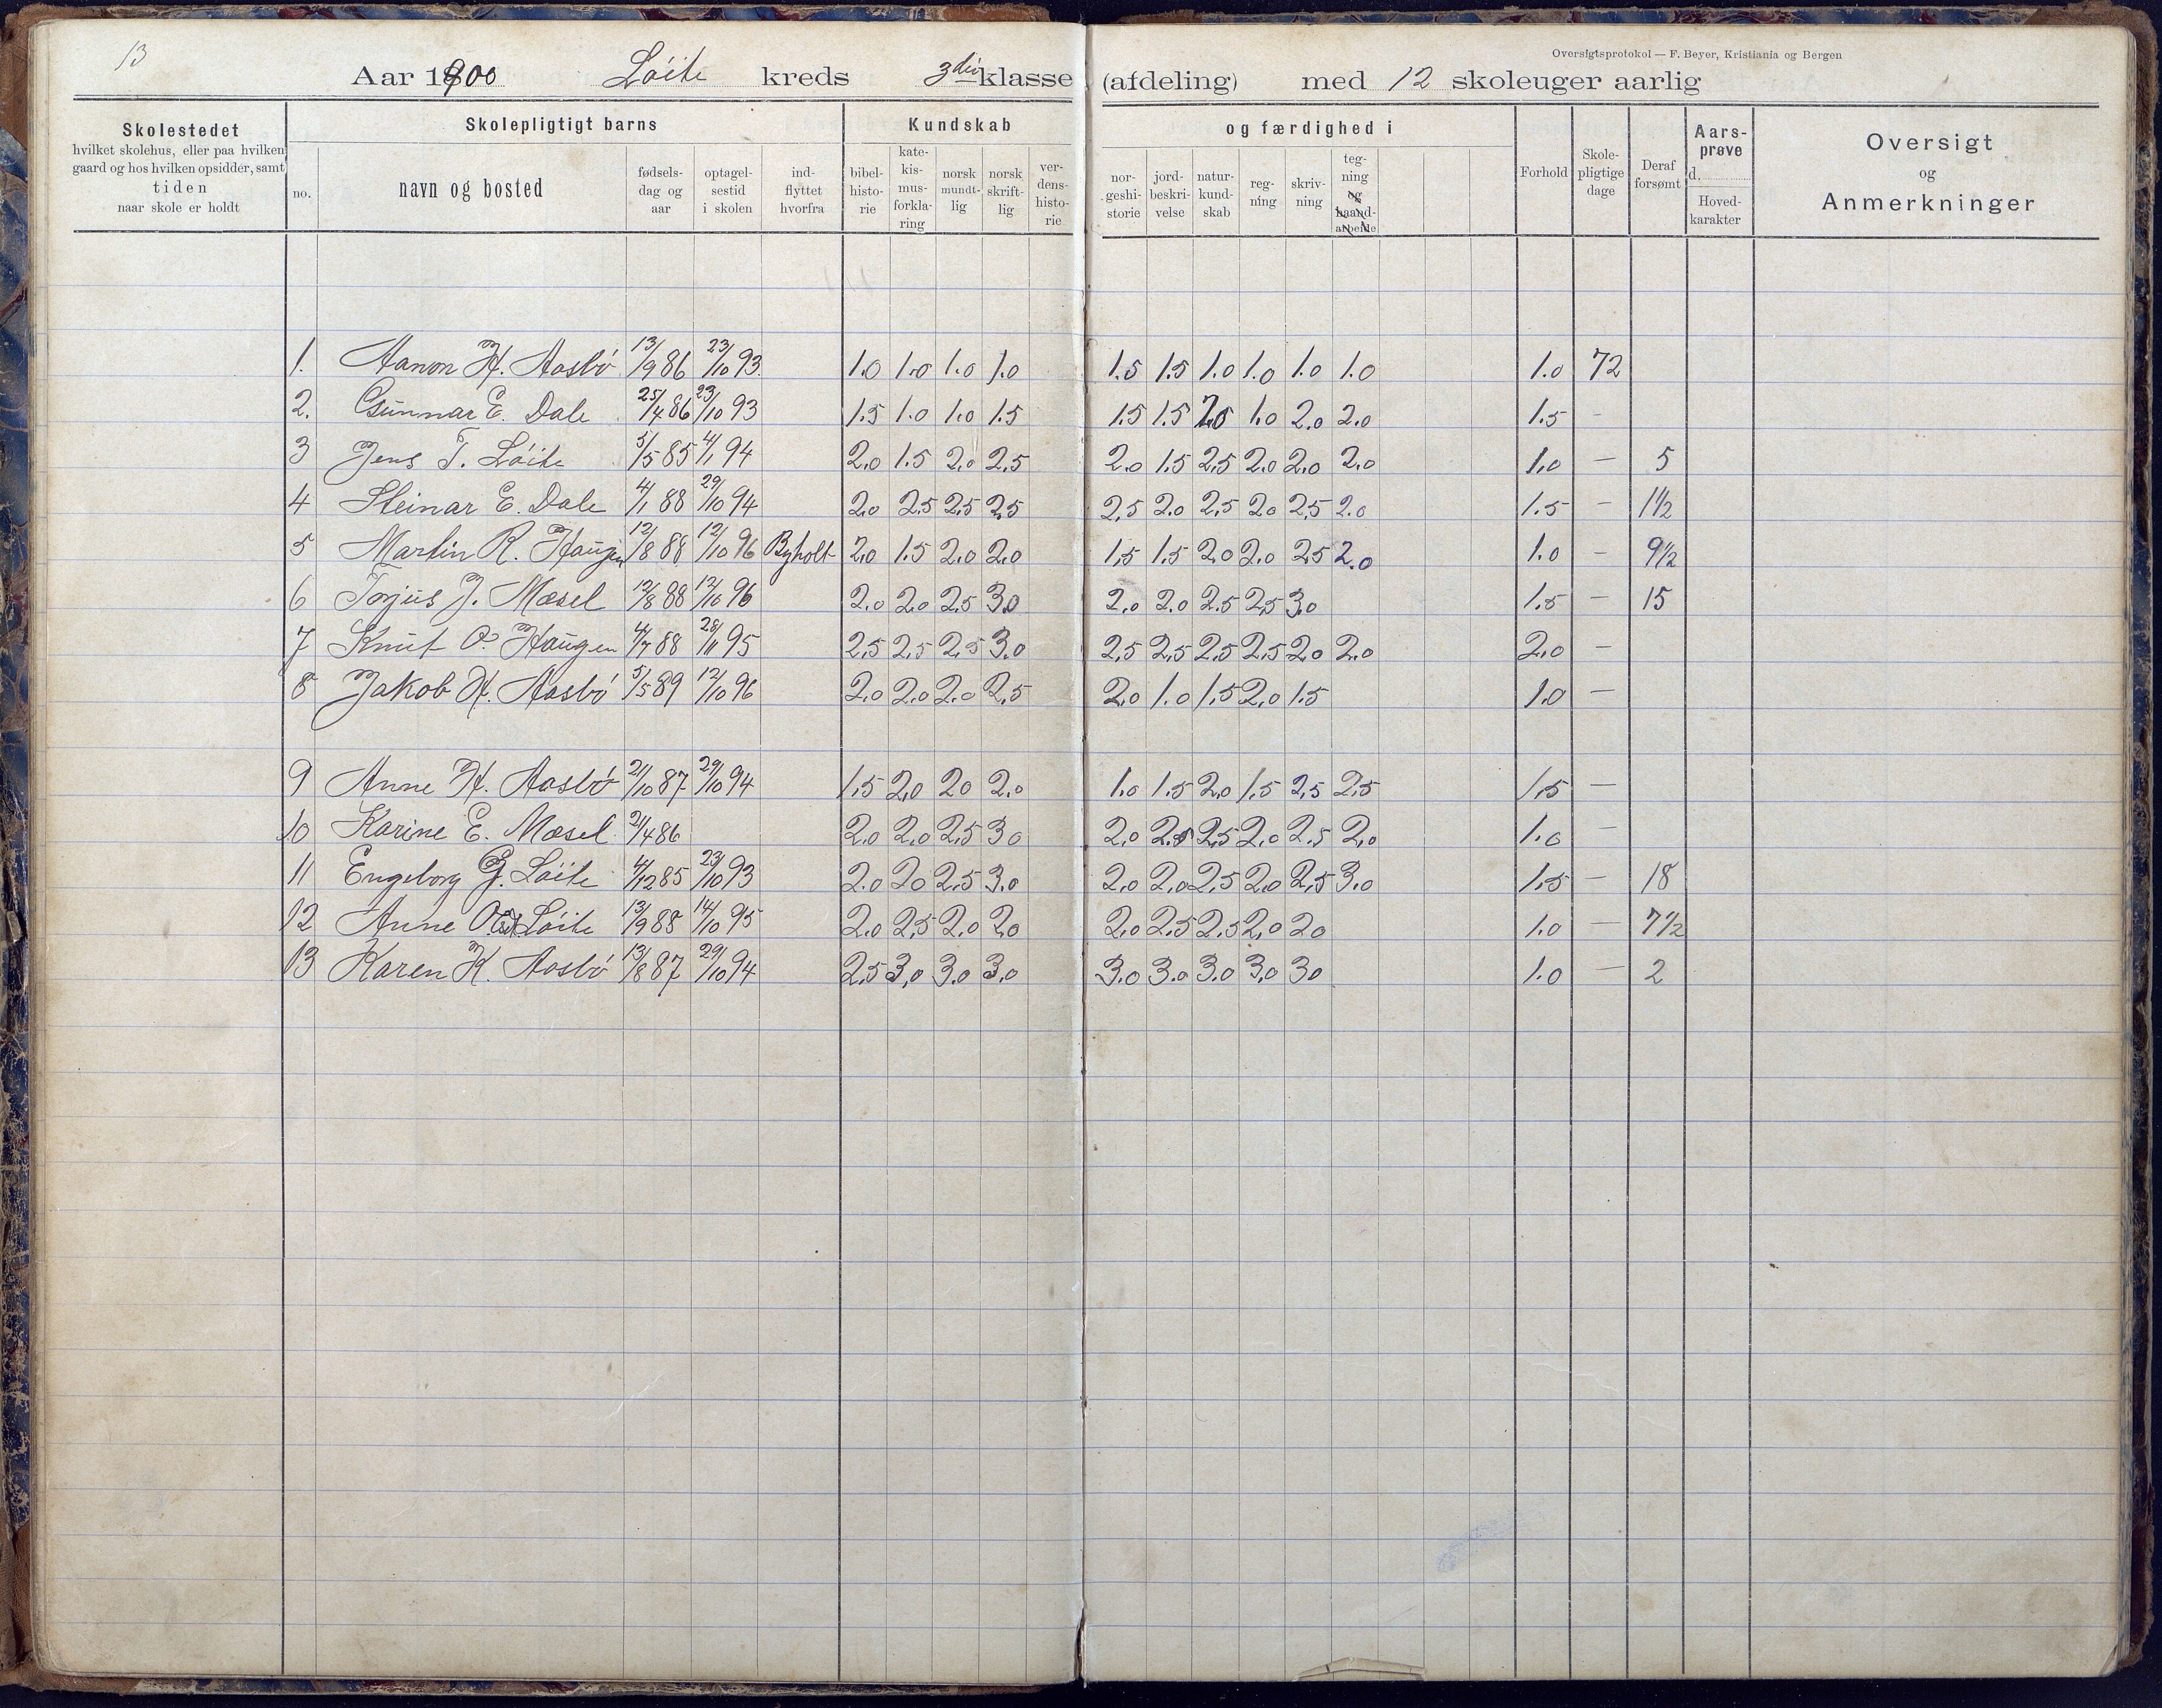 13
Oversigtsprotokol — F. Beyer, Kristiania og Bergen
Aar 1900 Löite kreds 3die klasse (afdeling) med 12 skoleuger aarlig
Skolestedet hvilket skolehus, eller paa hvilken gaard og hos hvilken opsidder, samt tiden naar skole er holdt
Skolepligtigt barns
no. navn og bosted fødsels-dag og aar optagel-sestid i skolen ind-flyttet hvorfra
Kundskab og færdighed i
bibel-histo-rie kate-kis-mus-forkla-ring norsk mundt-lig norsk skrift-lig ver-dens-histo-rie nor-geshi-storie jord-beskri-velse natur-kund-skab reg-ning skriv-ning teg-ning og haand-arbeide
Forhold Skole-pligtige dage Deraf forsømt Aars-prøve d. Hoved-karakter
Oversigt og Anmerkninger
1. Aanon H. Aasbö 13/9 86 23/10 93. 1.0 1.0 1.0 1.0 1.5 1.5 1.0 1.0 1.0 1.0 1.0 72
2. Gunnar E. Dale 25/4 86 23/10 93 1.5 1.0 1.0 1.5 1.5 1.5 1.0 2.0 2.0 1.5 -
3 Jens T. Löite 5/5 85 4/1 94 2.0 1.5 2.0 2.5 2.0 1.5 2.5 2.0 2.0 2.0 1.0 — 5
4 Steinar E. Dale 4/1 88 29/10 94 2.0 2.5 2.5 2.5 2.5 2.0 2.5 2.0 2.5 2.0 1.5 — 1 1/2
5 Martin R. Haugen 12/8 88 12/10 96 Byholt 2.0 1.5 2.0 2.0 1.5 1.5 2.0 2.0 2.5 2.0 1.0 — 9 1/2
6 Torjus J. Mæsel 12/8 88 12/10 96 2.0 2.0 2.5 3.0 2.0 2.0 2.5 2.5 3.0 1.5 — 15
7 Knut O. Haugen 4/7 88 28/11 95 2.5 2.5 2.5 3.0 2.5 2.5 2.5 2.5 2.0 2.0 2.0 —
8 Jakob H. Aasbö 5/5 89 12/10 96 2.0 2.0 2.0 2.5 2.0 1.0 1.5 2.0 1.5 1.0 —
9 Anne H. Aasbö 21/10 87 29/10 94 1.5 2.0 20 2.0 1.0 1.5 2.0 1.5 2.5 2.5 1.5 —
10 Karine E. Mæsel 21/4 86 2.0 2.0 2.5 30 2.0 2.5 2.5 2.0 2.5 2.0 1.0 —
11 Engeborg G. Löite 4/12 85 23/10 93 2.0 20 2.5 3.0 2.0 2.0 2.5 2.0 2.5 3.0 1.5 — 18
12 Anne Löite 13/9 88 14/10 95 2.0 2.5 2.0 2.0 2.0 2.5 2.5 2.0 20 1.0 — 7 1/2
13 Karen K. Aasbö 13/8 87 29/10 94 2.5 3.0 3.0 3.0 3.0 3.0 3.0 3.0 30 1.0 — 2